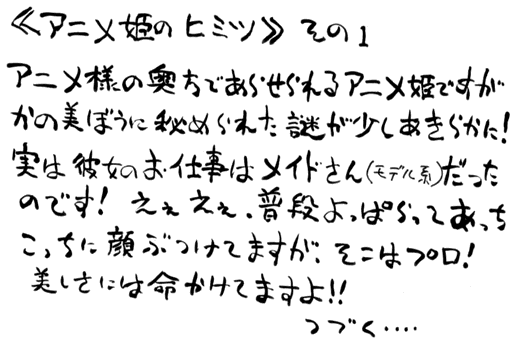 ≪アニメ姫のヒミツ≫ その1
アニメ様の奥方であらせられるアニメ姫ですが
かの美ぼうに秘められた謎が少しあきらかに!
実は彼女のお仕事はメイドさん(モデル系)だった
のです! えぇえぇ、普段よっぱらってあっち
こっちに顔ぶつけてますが、そこはプロ!
美しさには命かけてますよ!!
つづく‥‥